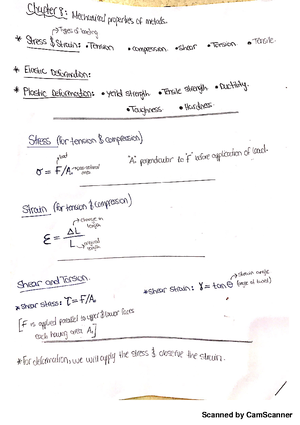 Chapter 8: Mechanical properties of metals.
Types of loading
* Stress & Strain: • Tension • compression • shear • Torsion
* Elastic Deformation:
* Plastic Deformation: • yeild strength • Tensile strength • Ductility.
• Toughness • Hardness.
Stress (for tension & compression)
load
σ = F/A₀ cross-sectional area
"A₀" perpendicular to "F" before application of load.
Strain (for tension & compression)
change in length
ε = ΔL
L₀ original length
Shear and Torsion.
* Shear stress: τ = F/A₀
* Shear strain: γ = tan θ strain angle
[F is applied parallel to upper & lower faces
each having area A₀]
* For deformation, we will apply the stress & observe the strain.
Scanned by CamScanner